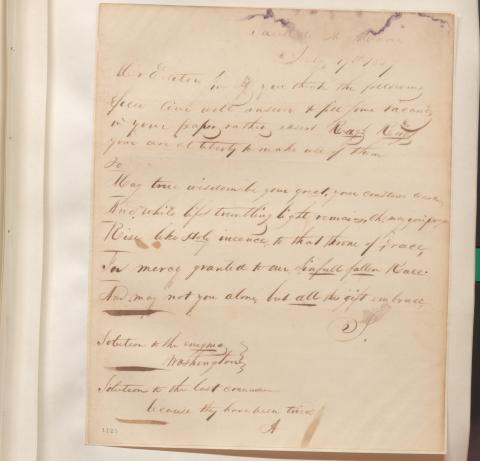 July 9th
Mr Editor If you think the following
few lines will answer to fill some vacancy
in your paper rather
you are at liberty to make use of them
To
May true wisdom be your great, your constant care,
And while life's trembling light remains, the
Rise like Holy incence to that throne of grace,
In mercy granted to our sinfull fallen Race.
And may not you alone, but all this gift embrace,
S.
Solution to the enigma
Washington
Solution to the last conundrum
because they have been tired
A
1125